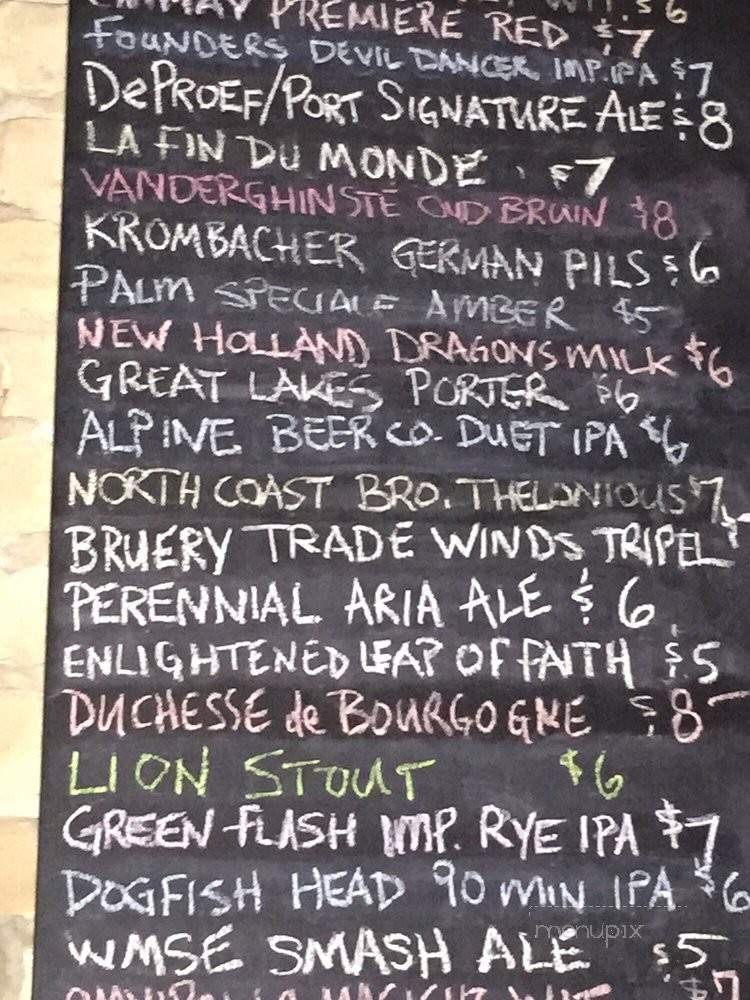 PREMIERE RED $7
FOUNDERS DEVIL DANCER IMP. IPA $7
DePROEF/PORT SIGNATURE ALE $8
LA FIN DU MONDE $7
VANDERGHINSTE OUD BRUIN $8
KROMBACHER GERMAN PILS $6
PALM SPECIALE AMBER $5
NEW HOLLAND DRAGONS MILK $6
GREAT LAKES PORTER $6
ALPINE BEER CO. DUET IPA $6
NORTH COAST BRO. THELONIOUS $7
BRUERY TRADE WINDS TRIPEL
PERENNIAL ARIA ALE $6
ENLIGHTENED LEAP OF FAITH $5
DUCHESSE de BOURGOGNE $8
LION STOUT $6
GREEN FLASH IMP. RYE IPA $7
DOGFISH HEAD 90 MIN IPA $6
menupix
WMSE SMASH ALE $5
$7